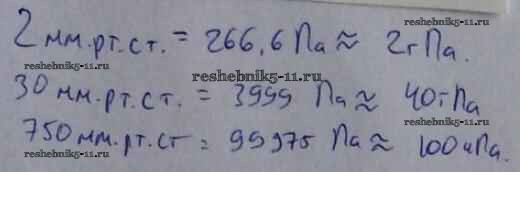 reshebnik5-11.ru
2 мм.рт.ст. = 266,6 Па ≈ 2гПа.
reshebnik5-11.ru
30 мм.рт.ст. = 3999 Па ≈ 40гПа
reshebnik5-11.ru
750 мм.рт.ст = 99975 Па ≈ 100кПа.
reshebnik5-11.ru
reshebnik5-11.ru